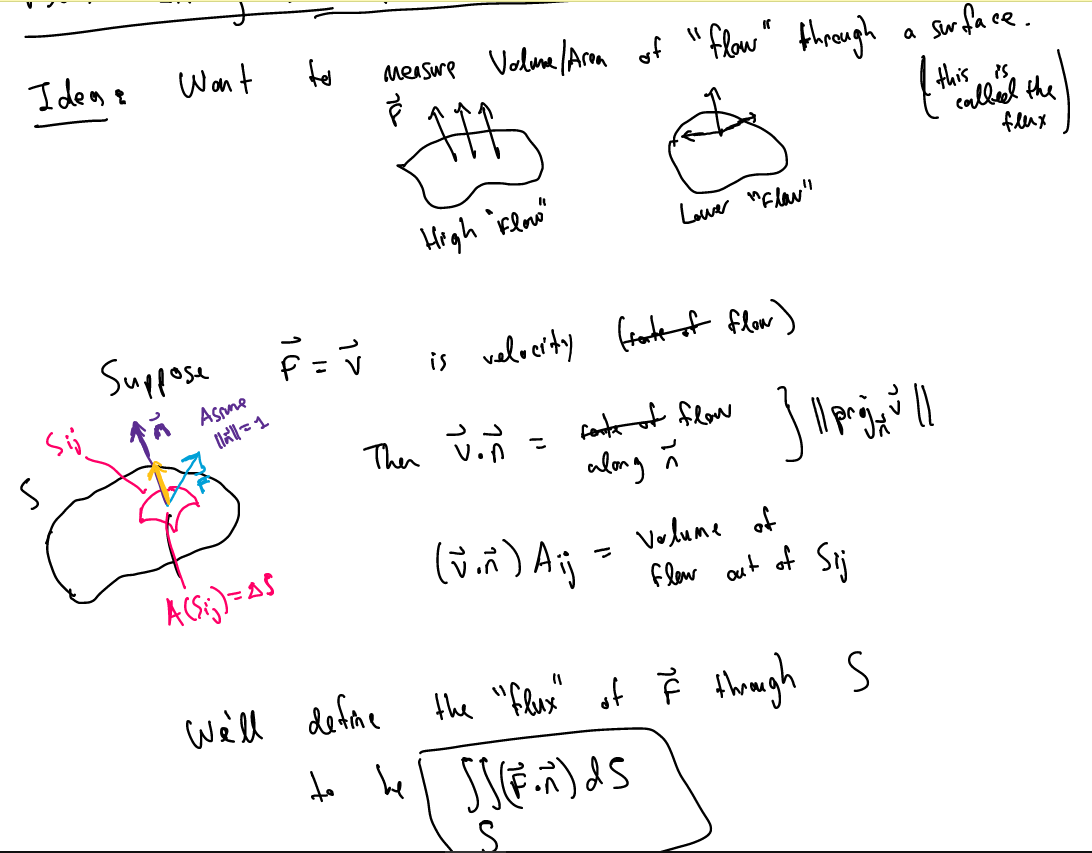 Idea: Want to measure Volume/Area of "flow" through a surface.
(this is called the flux)
F⃗
High "Flow"
Lower "Flow"
Suppose F⃗ = v⃗ is velocity (rate of flow)
n⃗
Assume
||n⃗||=1
Sij
S
A(Sij)=ΔS
Then v⃗·n⃗ = rate of flow
along n⃗
} ||proj_n⃗ v⃗||
(v⃗·n⃗) Aij = Volume of
flow out of Sij
We'll define the "flux" of F⃗ through S
to be ∬(F⃗·n⃗) dS
S